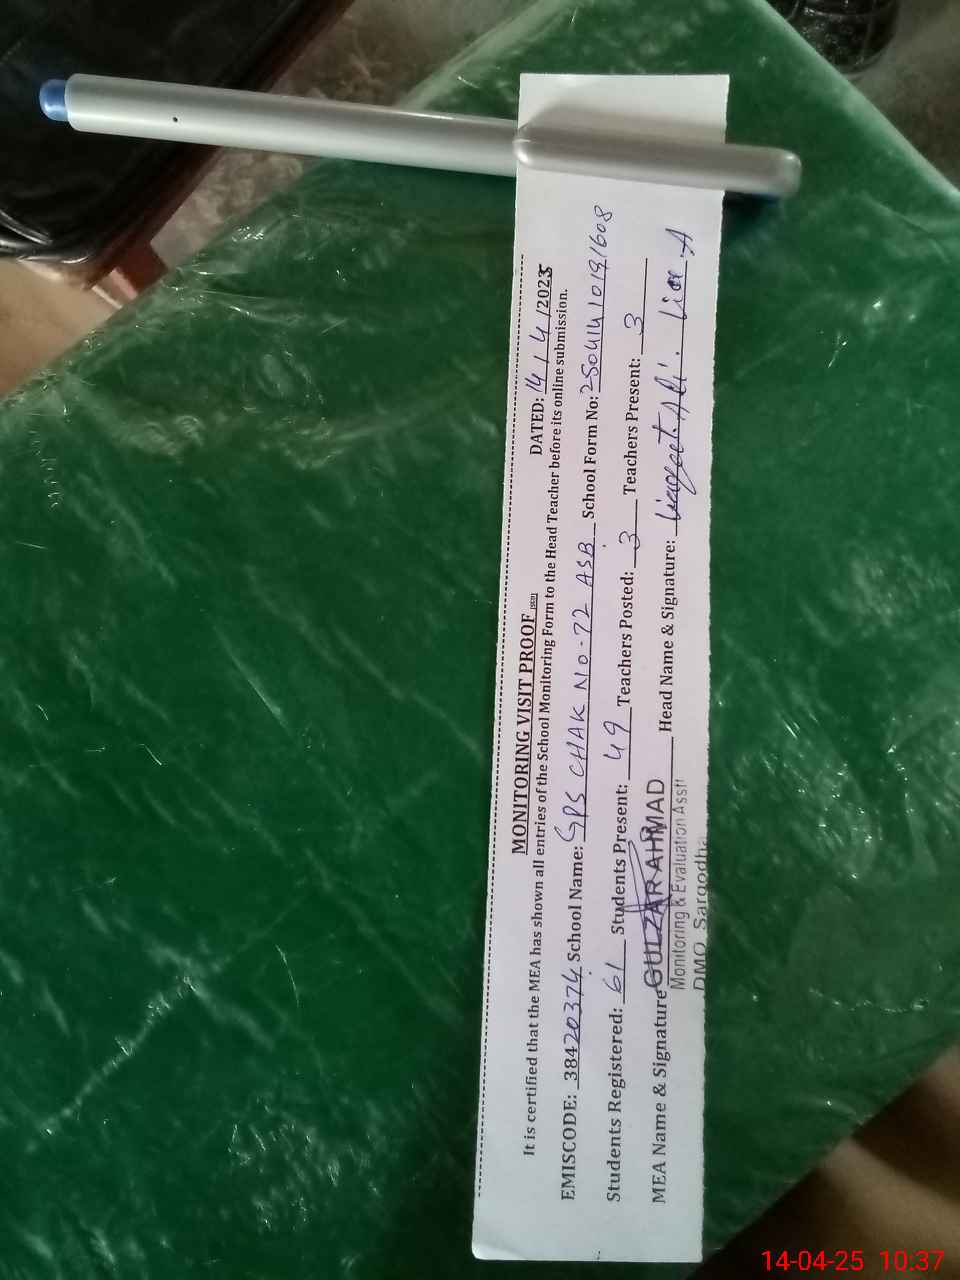 MONITORING VISIT PROOF
DATED: 14/4/2025
It is certified that the MEA has shown all entries of the School Monitoring Form to the Head Teacher before its online submission.
EMISCODE: 38420374 School Name: GPS CHAK NO-72 ASB School Form No:
Students Registered: 61 Students Present: 49 Teachers Posted: 3 Teachers Present: 3
MEA Name & Signature GULZAR AHMAD Head Name & Signature: Liaqat Ali.
Monitoring & Evaluation Asstt
DMO Sargodha
14-04-25 10:37